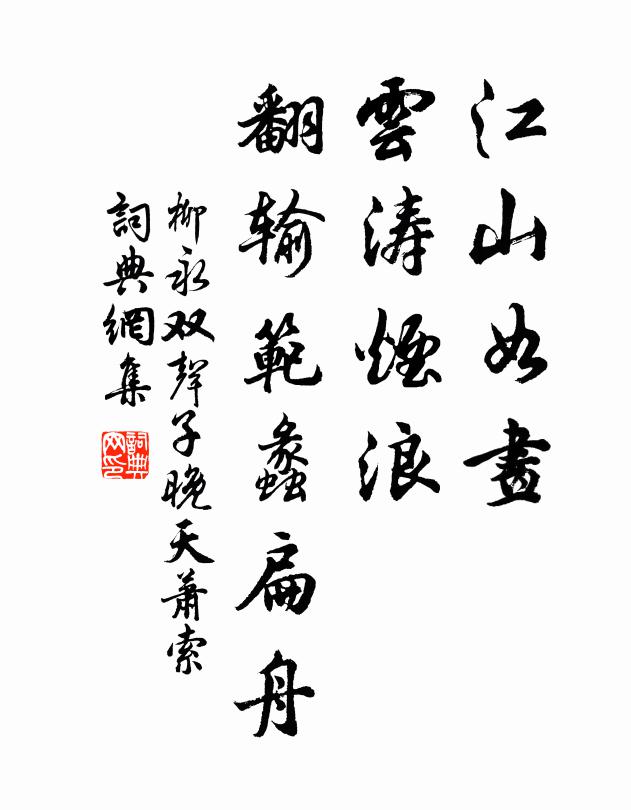 江山如畫
雲涛煙浪
翻输範蠡扁舟
柳永双聲子晚天蕭索
詞典網集
詞典网印